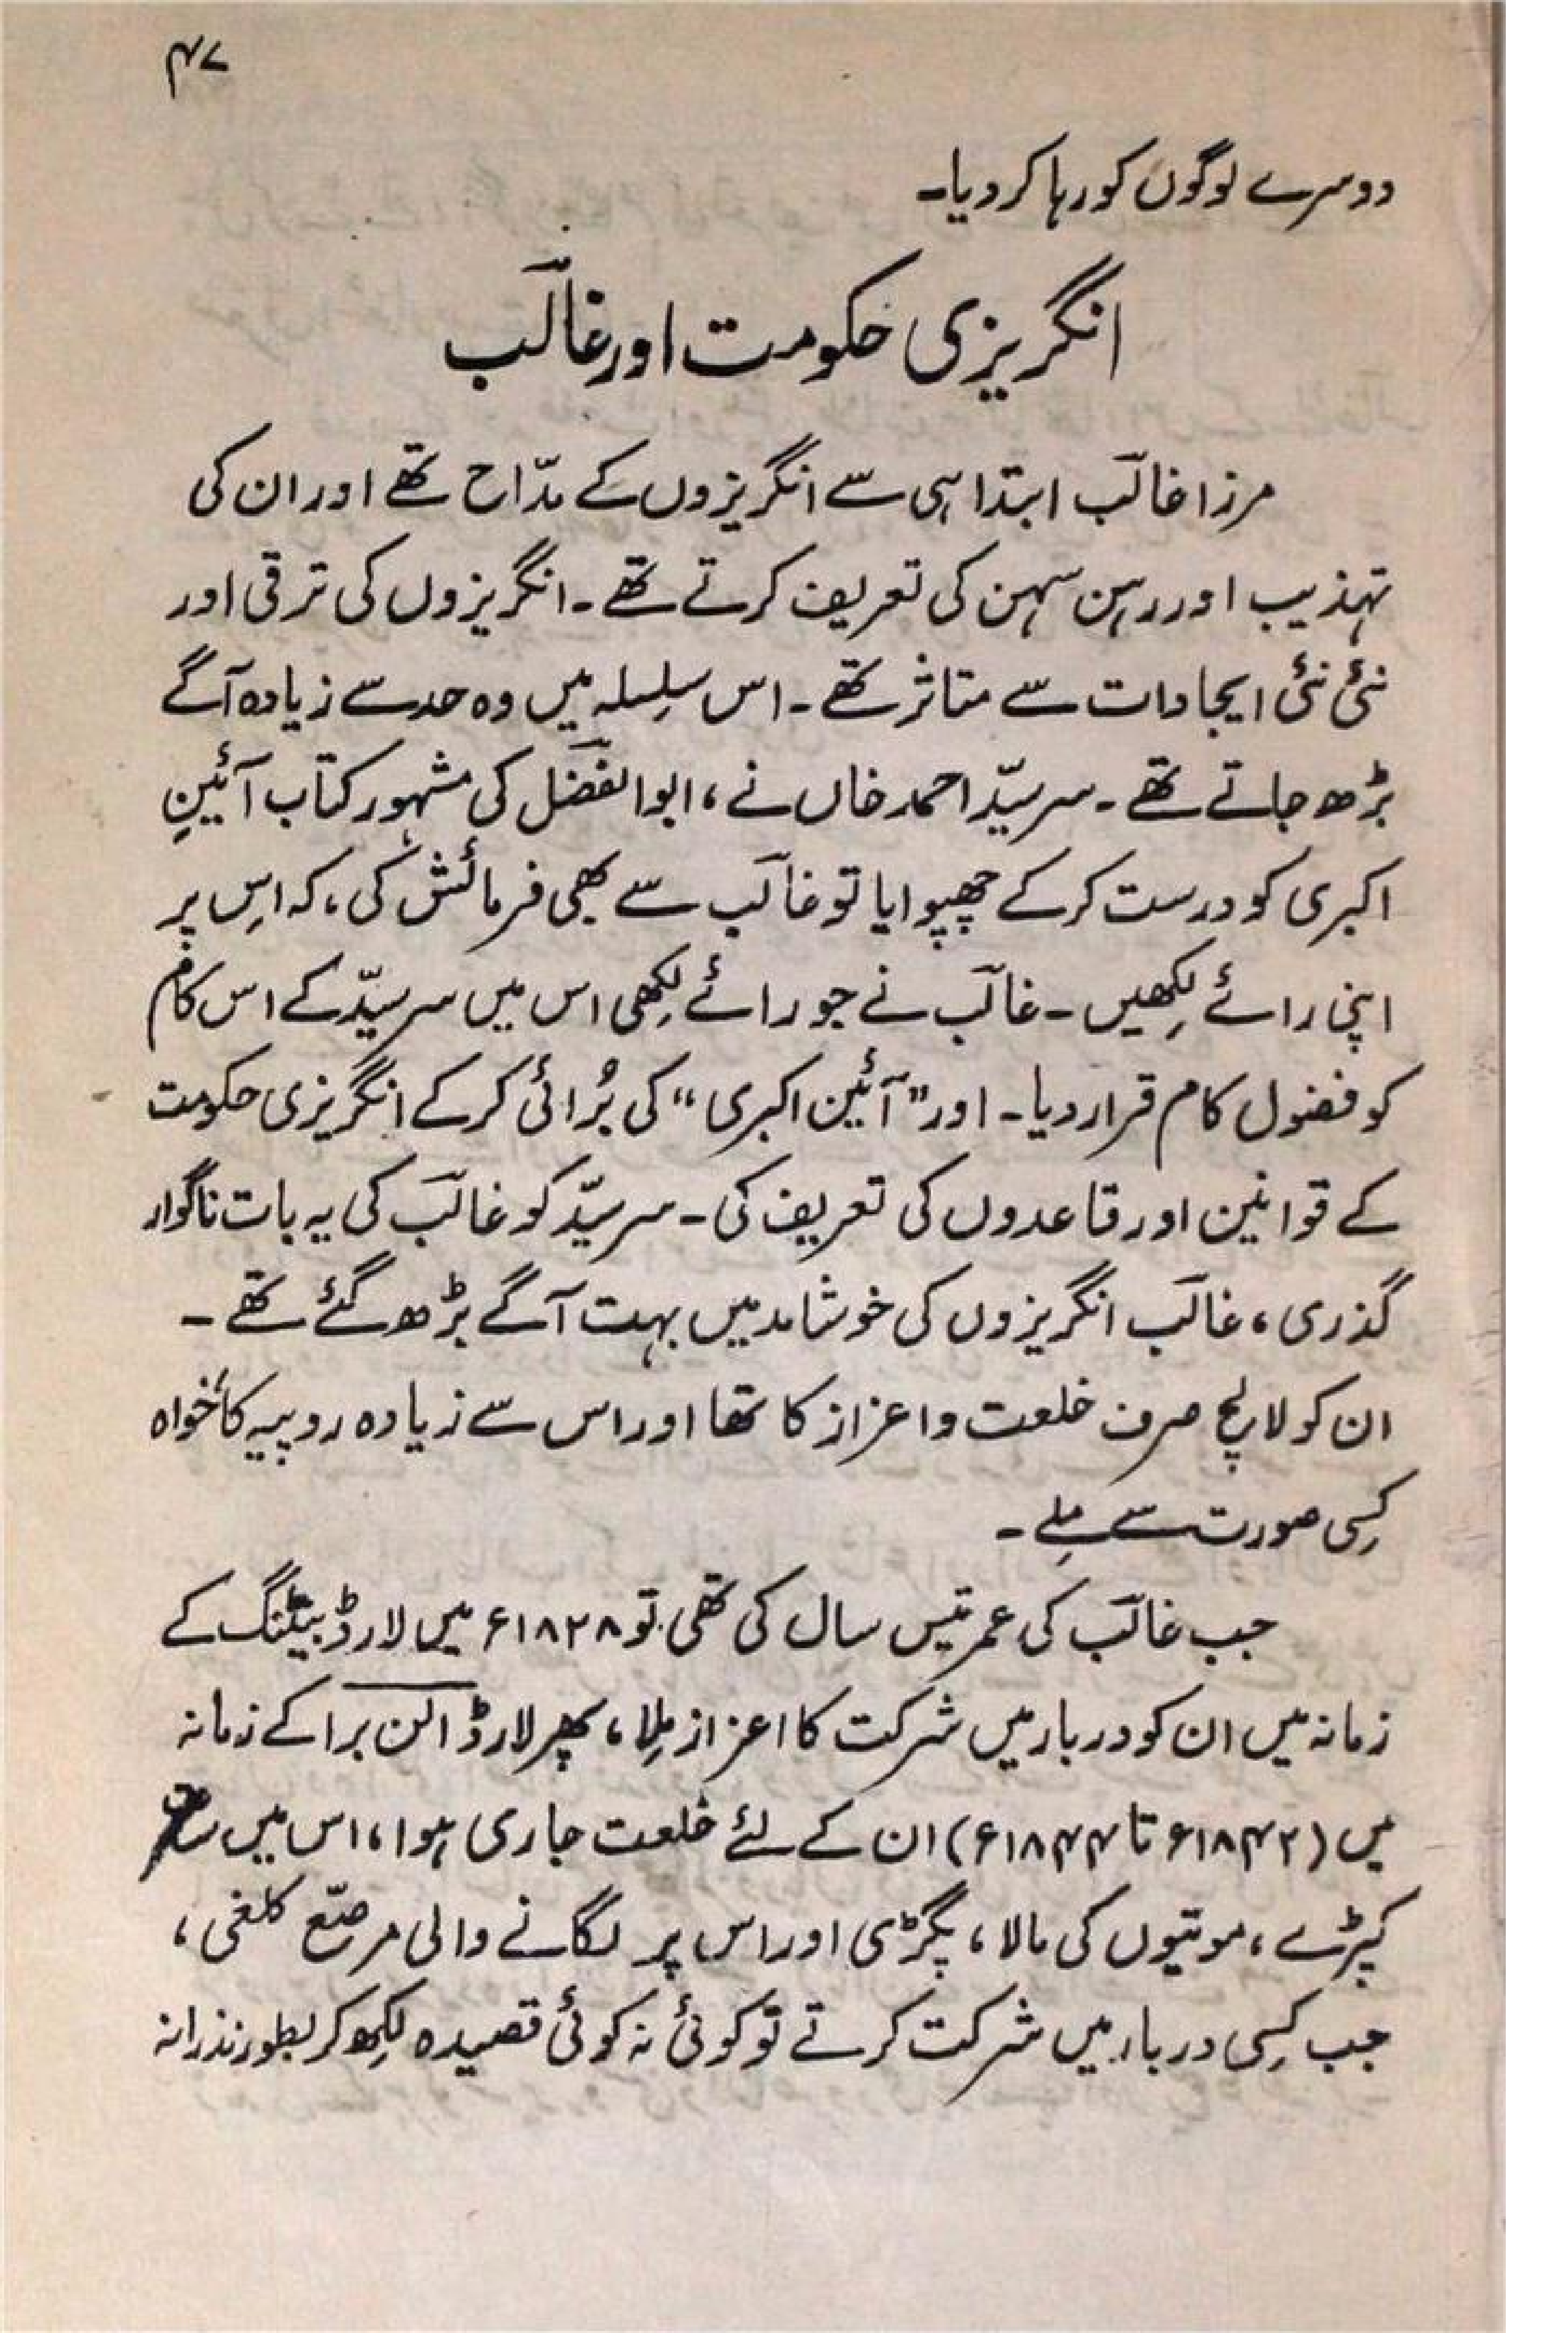 ۴۷
دوسرے لوگوں کو رہا کر دیا۔
انگریزی حکومت اور غالؔب
مرزا غالؔب ابتدا ہی سے انگریزوں کے مدّاح تھے اور ان کی
تہذیب اور رہن سہن کی تعریف کرتے تھے۔ انگریزوں کی ترقی اور
نئی نئی ایجادات سے متاثر تھے۔ اس سلِسلہ میں وہ حد سے زیادہ آگے
بڑھ جاتے تھے۔ سرسیّد احمد خاں نے، ابوالفضؔل کی مشہور کتاب آئینِ
اکبری کو درست کرکے چھپوایا تو غالؔب سے بھی فرمائش کی، کہ اسِ پر
اپنی رائے لِکھیں۔ غالؔب نے جو رائے لِکھی اس میں سرسیّد کے اس کام
کو فضول کام قرار دیا۔ اور ”آئین اکبری“ کی بُرائی کرکے انگریزی حکومت
کے قوانین اور قاعدوں کی تعریف کی۔ سرسیّد کو غالؔب کی یہ بات ناگوار
گذری، غالؔب انگریزوں کی خوشامد میں بہت آگے بڑھ گئے تھے۔
ان کو لالچ صرف خلعت و اعزاز کا تھا اور اس سے زیادہ روپیہ کا خواہ
کِسی صورت سے مِلے۔
جب غالؔب کی عمر تیس سال کی تھی تو ۱۸۲۸ء میں لارڈ بیٹنگ کے
زمانہ میں ان کو دربار میں شرکت کا اعزاز مِلا، پھر لارڈ الن برا کے زمانہ
میں (۱۸۴۲ء تا ۱۸۴۴ء) ان کے لئے خلعت جاری ہوا، اس میں سات
کپڑے، موتیوں کی مالا، پگڑی اور اس پر لگانے والی مرصّع کلغی،
جب کِسی دربار میں شرکت کرتے تو کوئی نہ کوئی قصیدہ لِکھ کر بطور نذرانہ